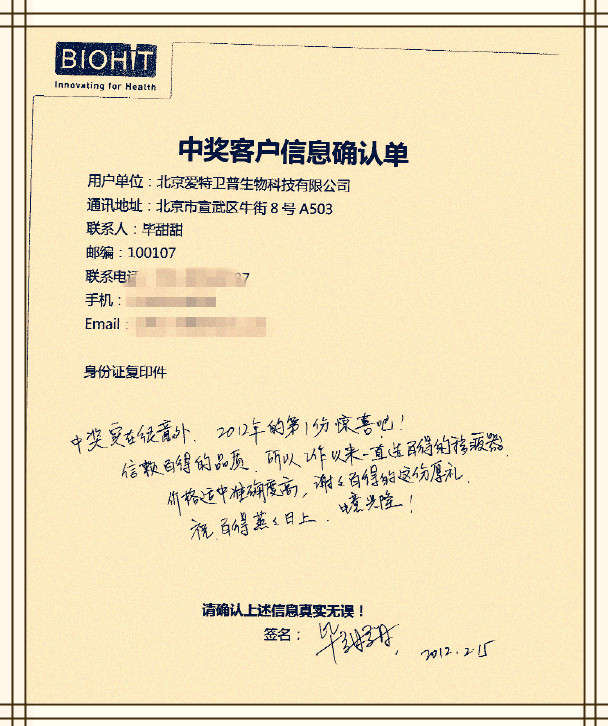 BIOHIT
Innovating for Health
中奖客户信息确认单
用户单位：北京爱特卫普生物科技有限公司
通讯地址：北京市宣武区牛街 8 号 A503
联系人：毕甜甜
邮编：100107
联系电话
手机：
Email：
身份证复印件
中奖实在很意外，2012年的第1份惊喜吧！
信赖百得的品质，所以工作以来一直选百得的移液器，
价格适中准确度高，谢谢百得的这份厚礼，
祝百得蒸蒸日上，生意兴隆！
请确认上述信息真实无误！
签名：毕甜甜
2012.2.15